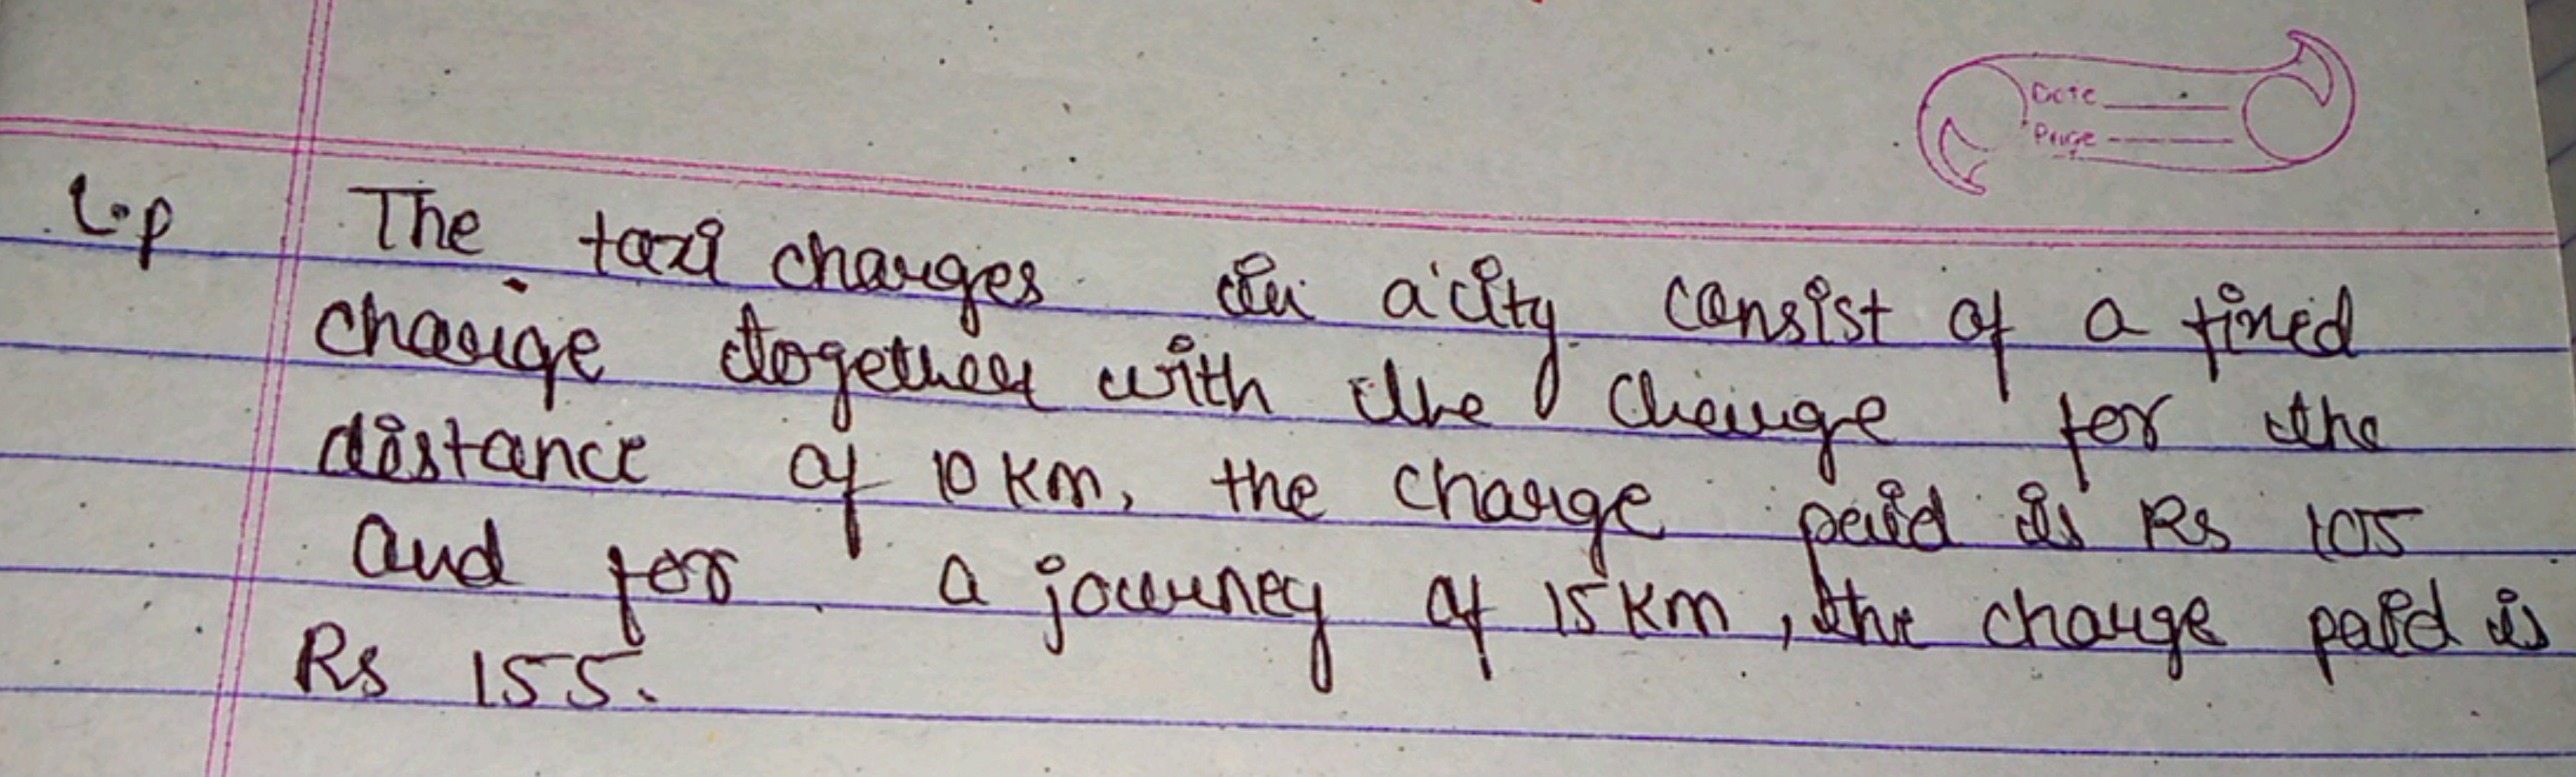 Date
Page
L.p The taxi charges in a city consist of a fixed
charge together with the charge for the
distance of 10 km, the charge paid is Rs 105
and for a journey of 15 km, the charge paid is
Rs 155.